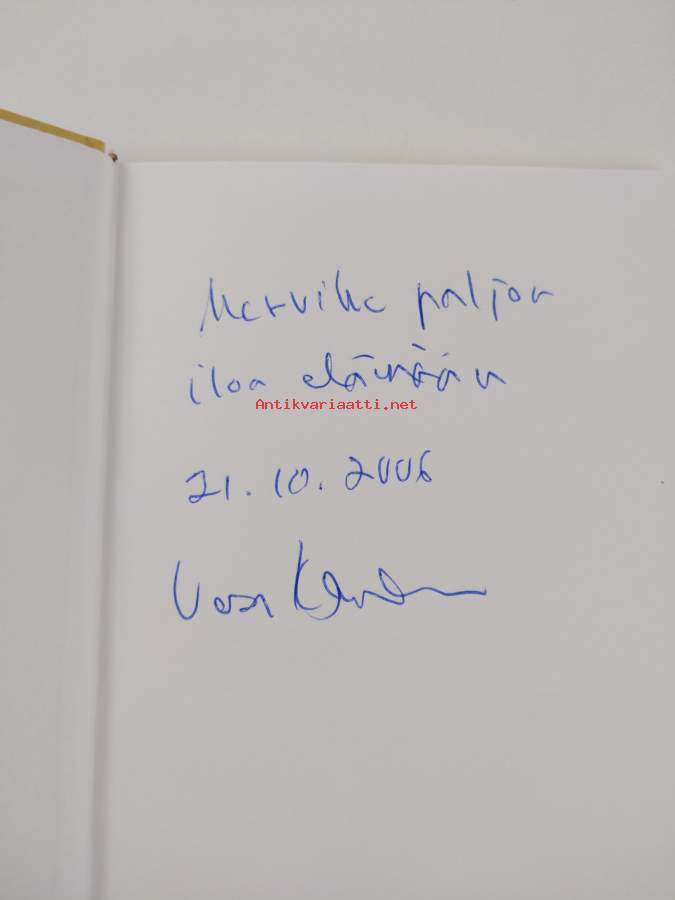 Merville paljon
iloa elämään
Antikvariaatti.net
21.10.2006
Vesa